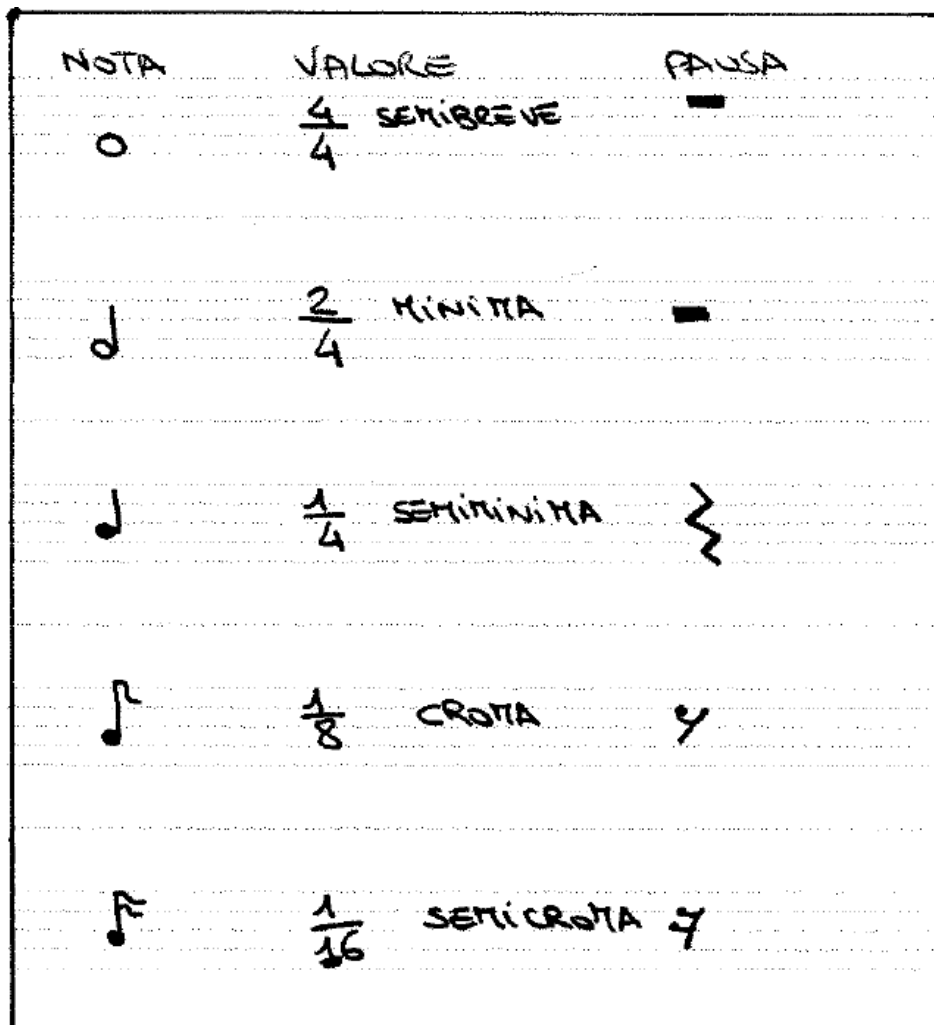 NOTA VALORE PAUSA
4/4 SEMIBREVE
2/4 MINIMA
1/4 SEMIMINIMA
1/8 CROMA
1/16 SEMICROMA